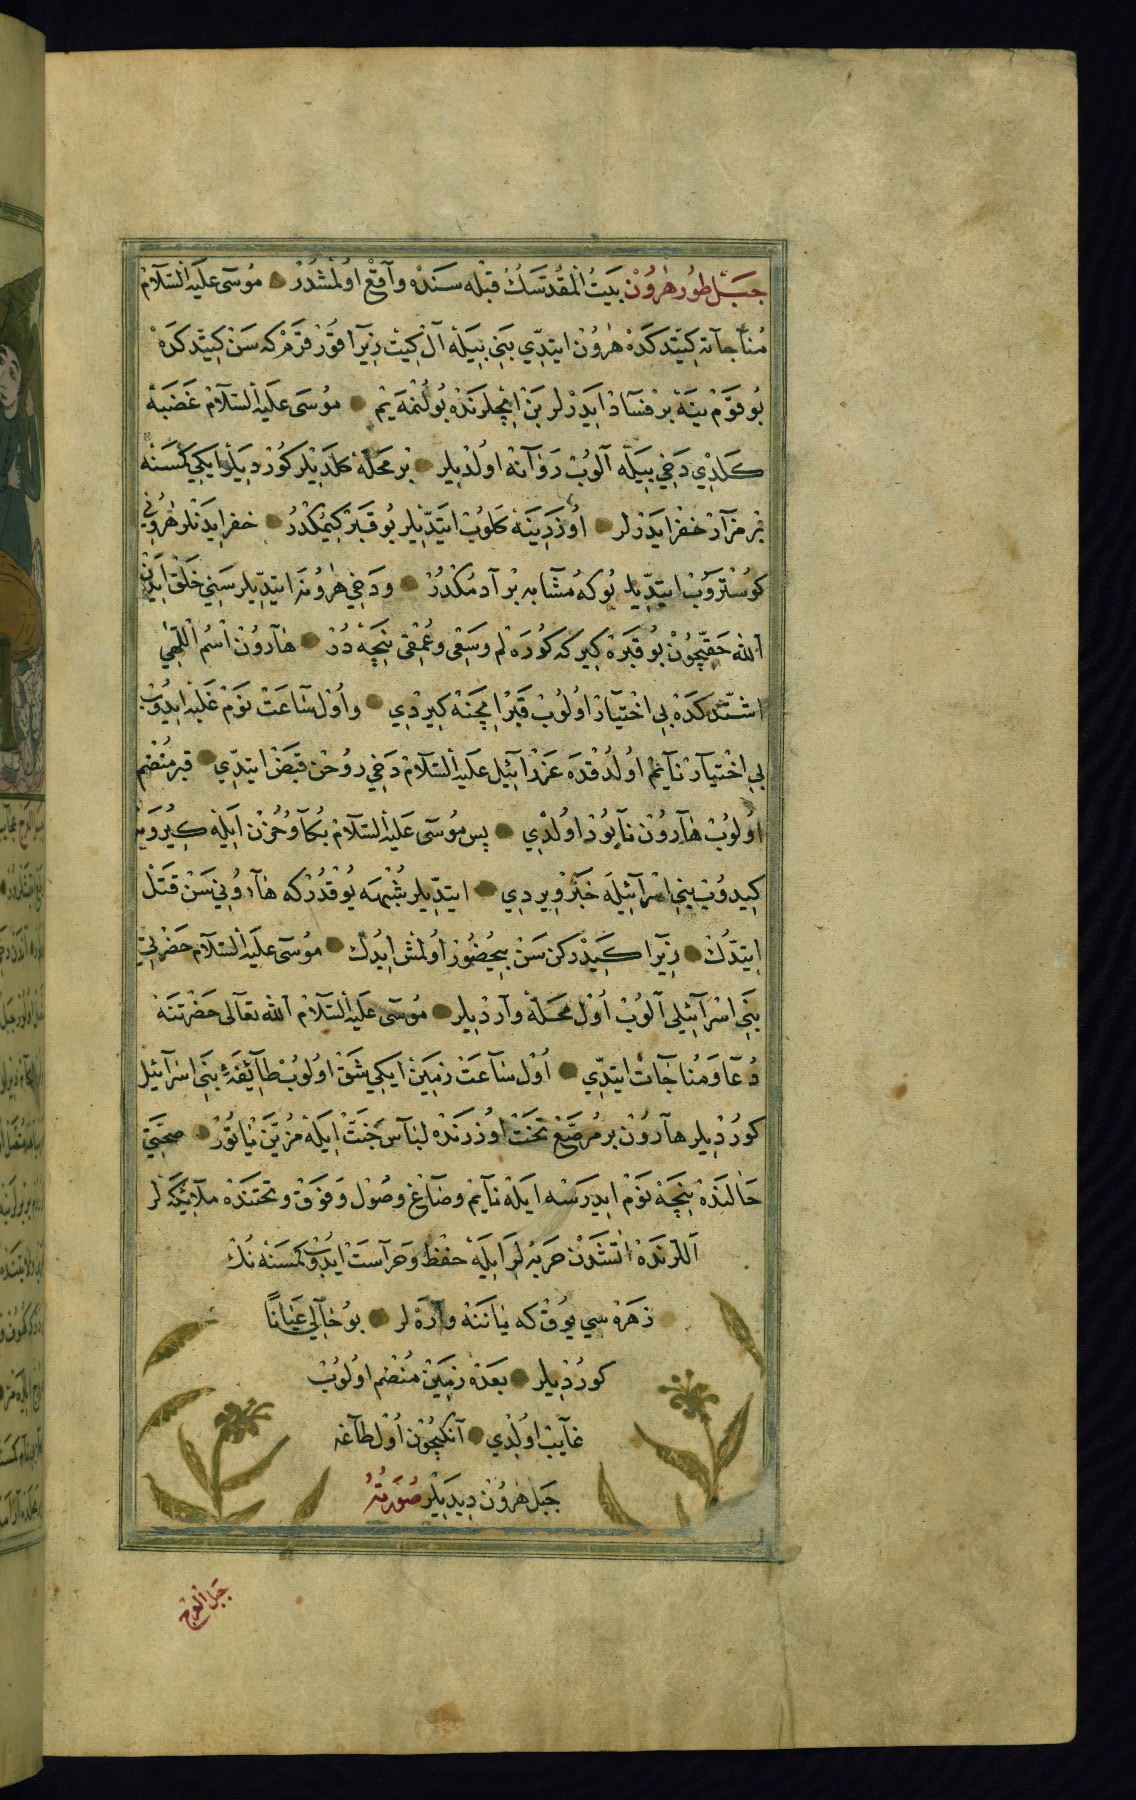 جبل طور هرون بيت المقدسك قبله سنده واقع اولمشدر موسى عليه السلام
مناجاته كيتدكده هرون ايتدي بني بيله آل كيت زيرا قورقرم كه سن كيتدكده
بو قوم ينه بر فساد ايدرلر بن انجلرنده بولنمه يم موسى عليه السلام غضبه
كلدي دخي بيله آلوب روانه اولديلر بر محله كلديلر كورديلر ايكي كمسنه
بر مزار حفر ايدرلر اوزرينه كلوب ايتديلر بو قبر كيمكدر حفر ايدنلر هروني
كوستروب ايتديلر بوكه مشابه بر آدمكدر ودخي هرونه ايتديلر سني خلق ايدن
الله حقيچون بو قبره كير كه كوره لم وسعي وعمقي نيچه در هارون اسم اللهي
اشتدكده بي اختيار اولوب قبر ايچنه كيردي واول ساعت نوم غلبه ايدوب
بي اختيار نايم اولدقده عزرائيل عليه السلام دخي روحن قبض ايتدي قبر منضم
اولوب هارون نابود اولدي پس موسى عليه السلام بكا وحزن ايله كيرو
كيدوب بني اسرائيله خبر ويردي ايتديلر شبهه يوقدر كه هاروني سن قتل
ايتدك زيرا كيدركن سن بيحضور اولمش ايدك موسى عليه السلام حضرتي
بني اسرائيلي آلوب اول محله وارديلر موسى عليه السلام الله تعالى حضرتنه
دعا ومناجات ايتدي اول ساعت زمين ايكي شق اولوب طائفه بني اسرائيل
كورديلر هارون بر مرصع تخت اوزرنده لباس جنت ايله مزين ياتور صحتي
حالنده نيچه نوم ايدرسه ايله نايم وصاغ وصول وفوق وتحتنده ملائكه لر
اللرنده آتشدن حربه لر ايله حفظ وحراست ايدوب كمسنه نك
زهره سي يوق كه ياننه واره لر بو حالي عيانا
كورديلر بعده زمين منضم اولوب
غايب اولدي آنكيچون اول طاغه
جبل هرون ديديلر صورته
جبل الفرج